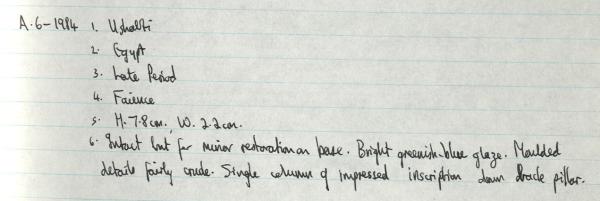 A.6-1984 1. Ushabti
2. Egypt
3. Late Period
4. Faience
5. H. 7.8cm, W. 2.2cm.
6. Intact but for minor restoration on base. Bright greenish-blue glaze. Moulded
details fairly crude. Single column of impressed inscription down back pillar.